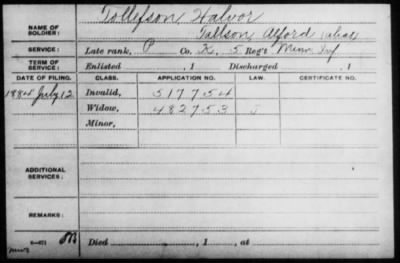 NAME OF SOLDIER: Tollefson, Halvor
Tallson, Alford (alias)
SERVICE: Late rank, P Co. K, 5 Reg't Minn Inf
TERM OF SERVICE: Enlisted , 1 Discharged , 1
DATE OF FILING. CLASS. APPLICATION NO. LAW. CERTIFICATE NO.
July 12 Invalid, 517754
Widow, 482753
Minor,
ADDITIONAL SERVICES:
REMARKS:
Died , 1 , at